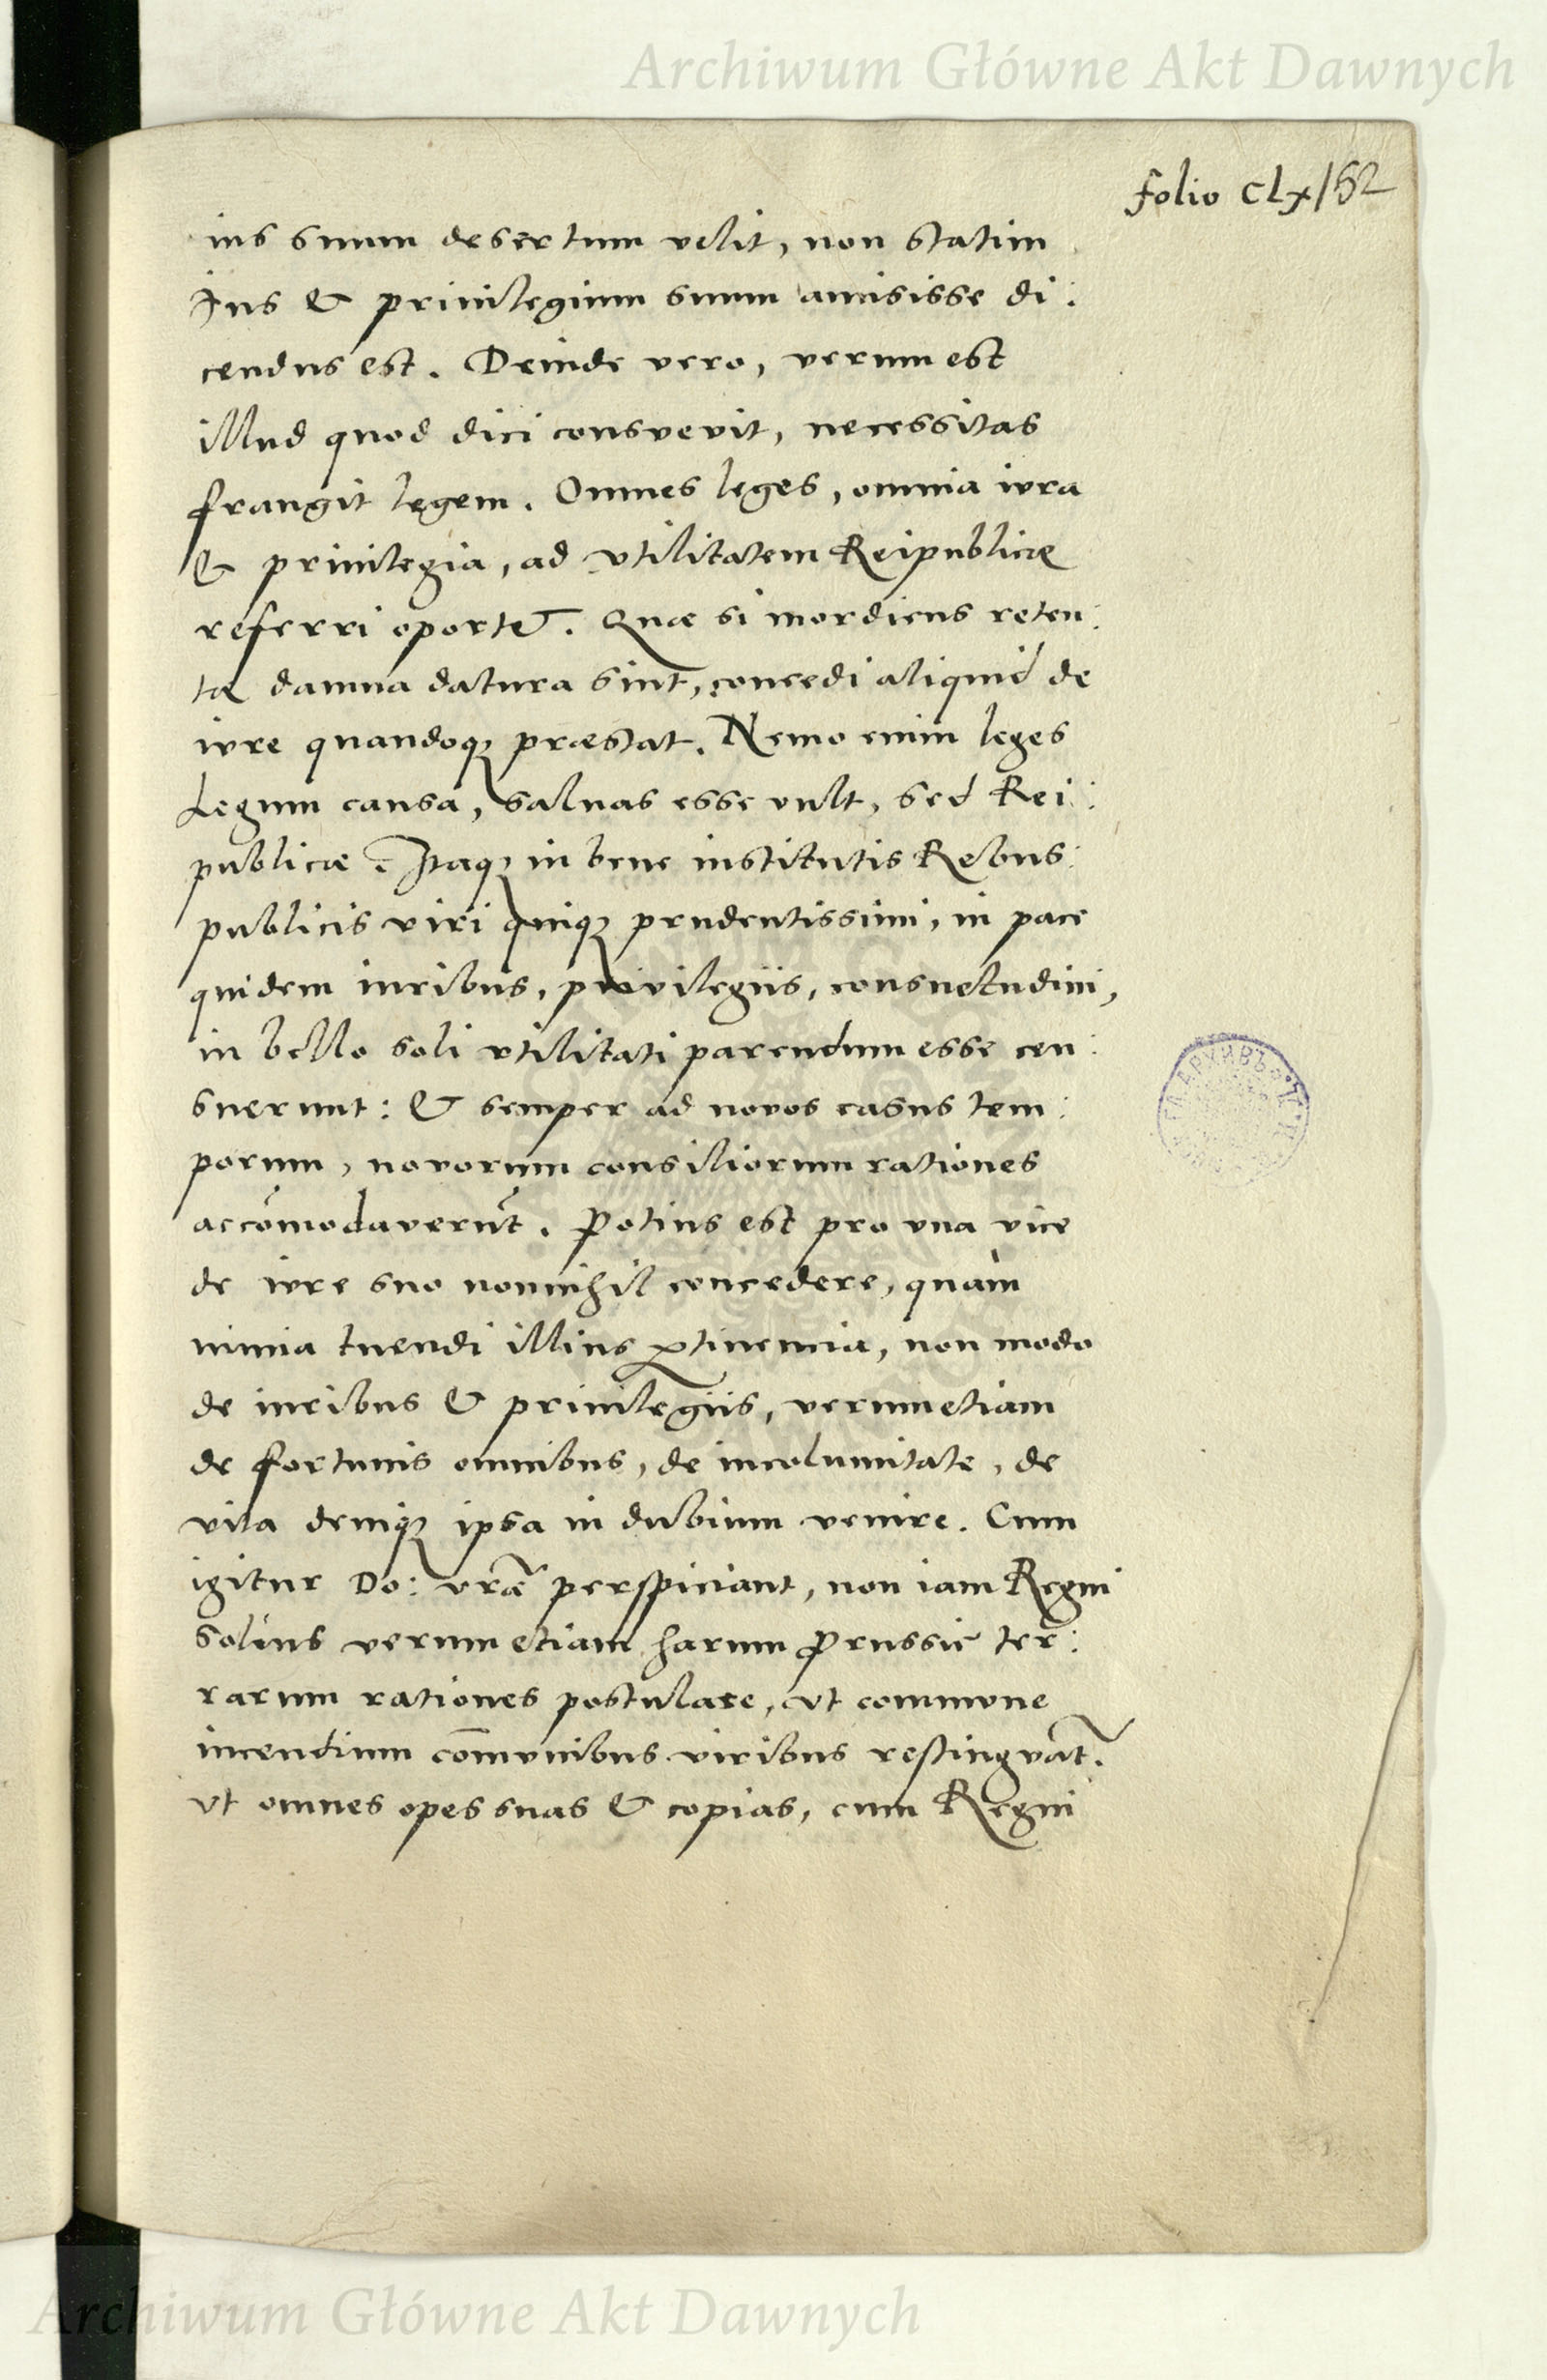 Archiwum Główne Akt Dawnych
folio CLx/62
ius suum desertum velit, non statim
Ius & priuilegium suum amisisse di:
cendus est. Deinde vero, verum est
illud quod dici consvevit, necessitas
frangit legem. Omnes leges, omnia ivra
& priuilegia, ad vtilitatem Reipublicæ
referri oportet. Quæ si mordicus reten:
ta damna datura sint, concedi aliquid de
ivre quandoq; præstat. Nemo enim leges
Legum causa, saluas esse vult, sed Rei:
publicæ. Itaq; in bene institutis Rebus:
publicis viri quiq; prudentissimi, in pace
quidem iuribus, privilegiis, consuetudini,
in bello soli vtilitati parendum esse cen:
suerunt: & semper ad novos casus tem:
porum, novorum consiliorum rationes
accõmodaverũt. Potius est pro vna vice
de ivre suo nonnihil concedere, quàm
nimia tuendi illius ꝑtinentia, non modo
de iuribus & priuilegiis, verumetiam
de fortunis omnibus, de incolumitate, de
vita deniq; ipsa in dubium venire. Cum
igitur Do: vrã perspiciant, non iam Regni
solius verum etiam harum Prussie ter:
rarum rationes postulare, vt commvne
incendium com̃vnibus viribus restingvãt.
vt omnes opes suas & copias, cum Regni
Archiwum Główne Akt Dawnych